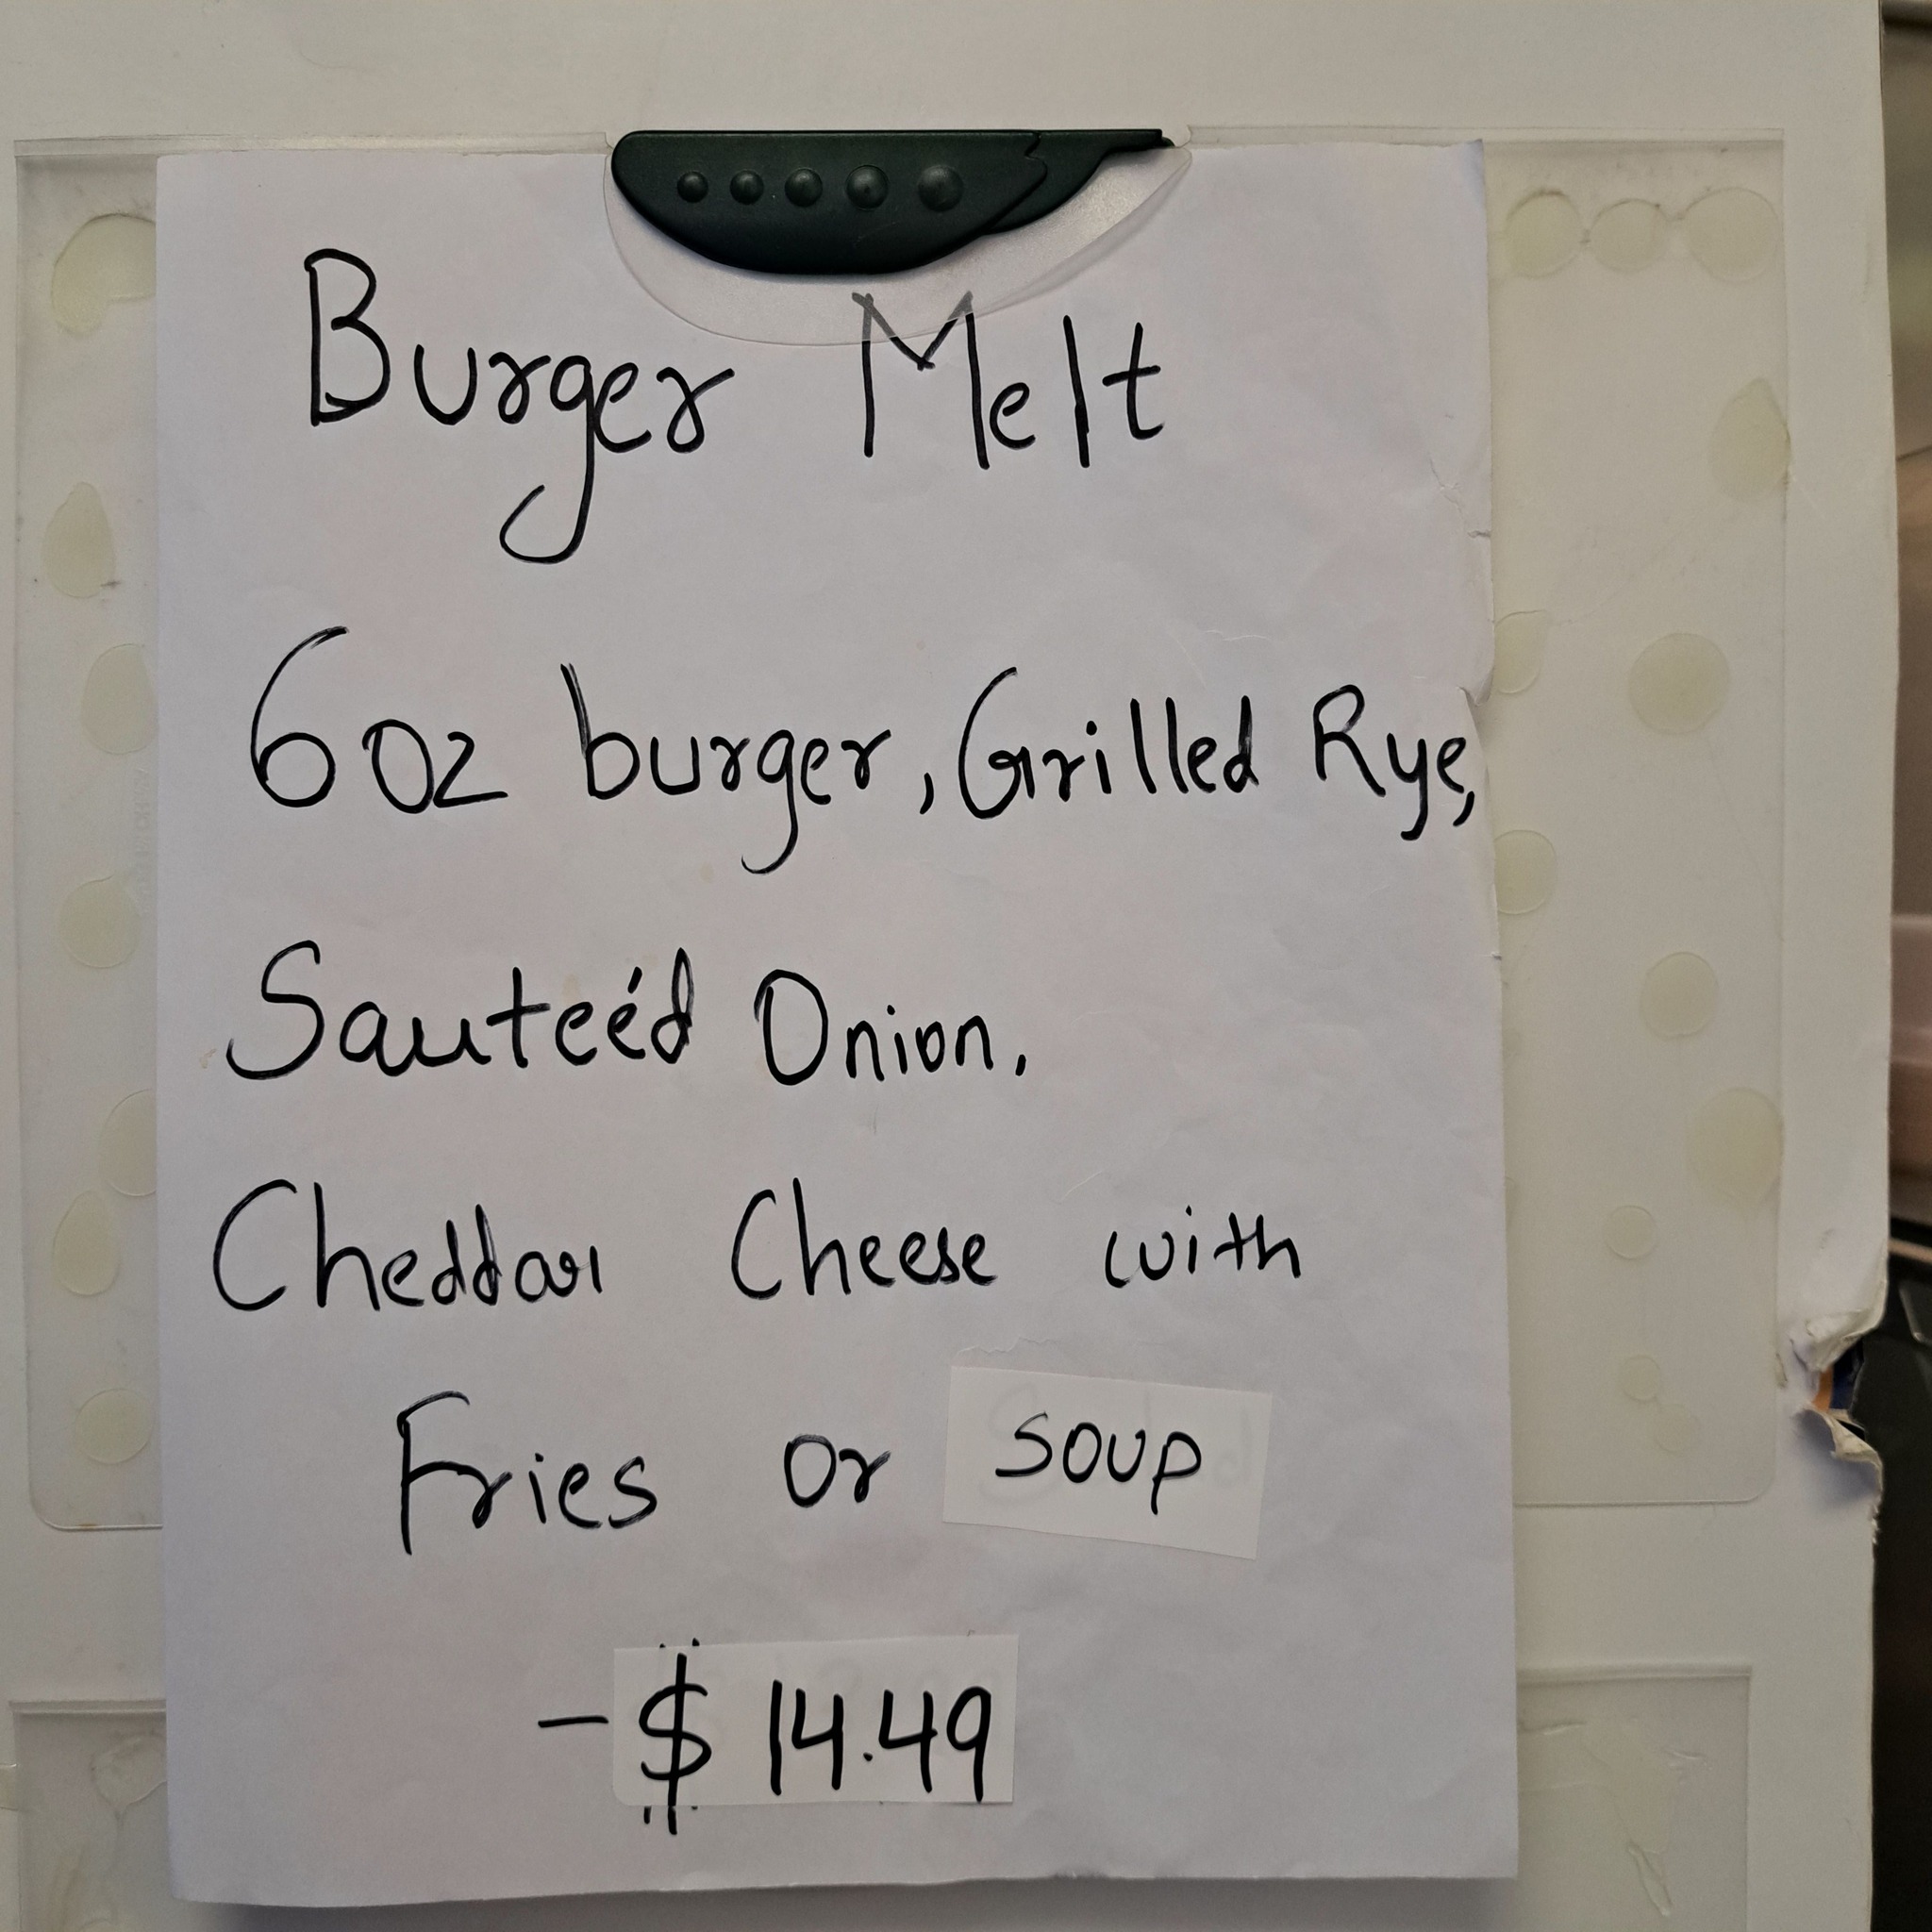 Burger Melt
6 oz burger, Grilled Rye,
Sauteéd Onion.
Cheddar Cheese with
Fries or soup
- $ 14.49